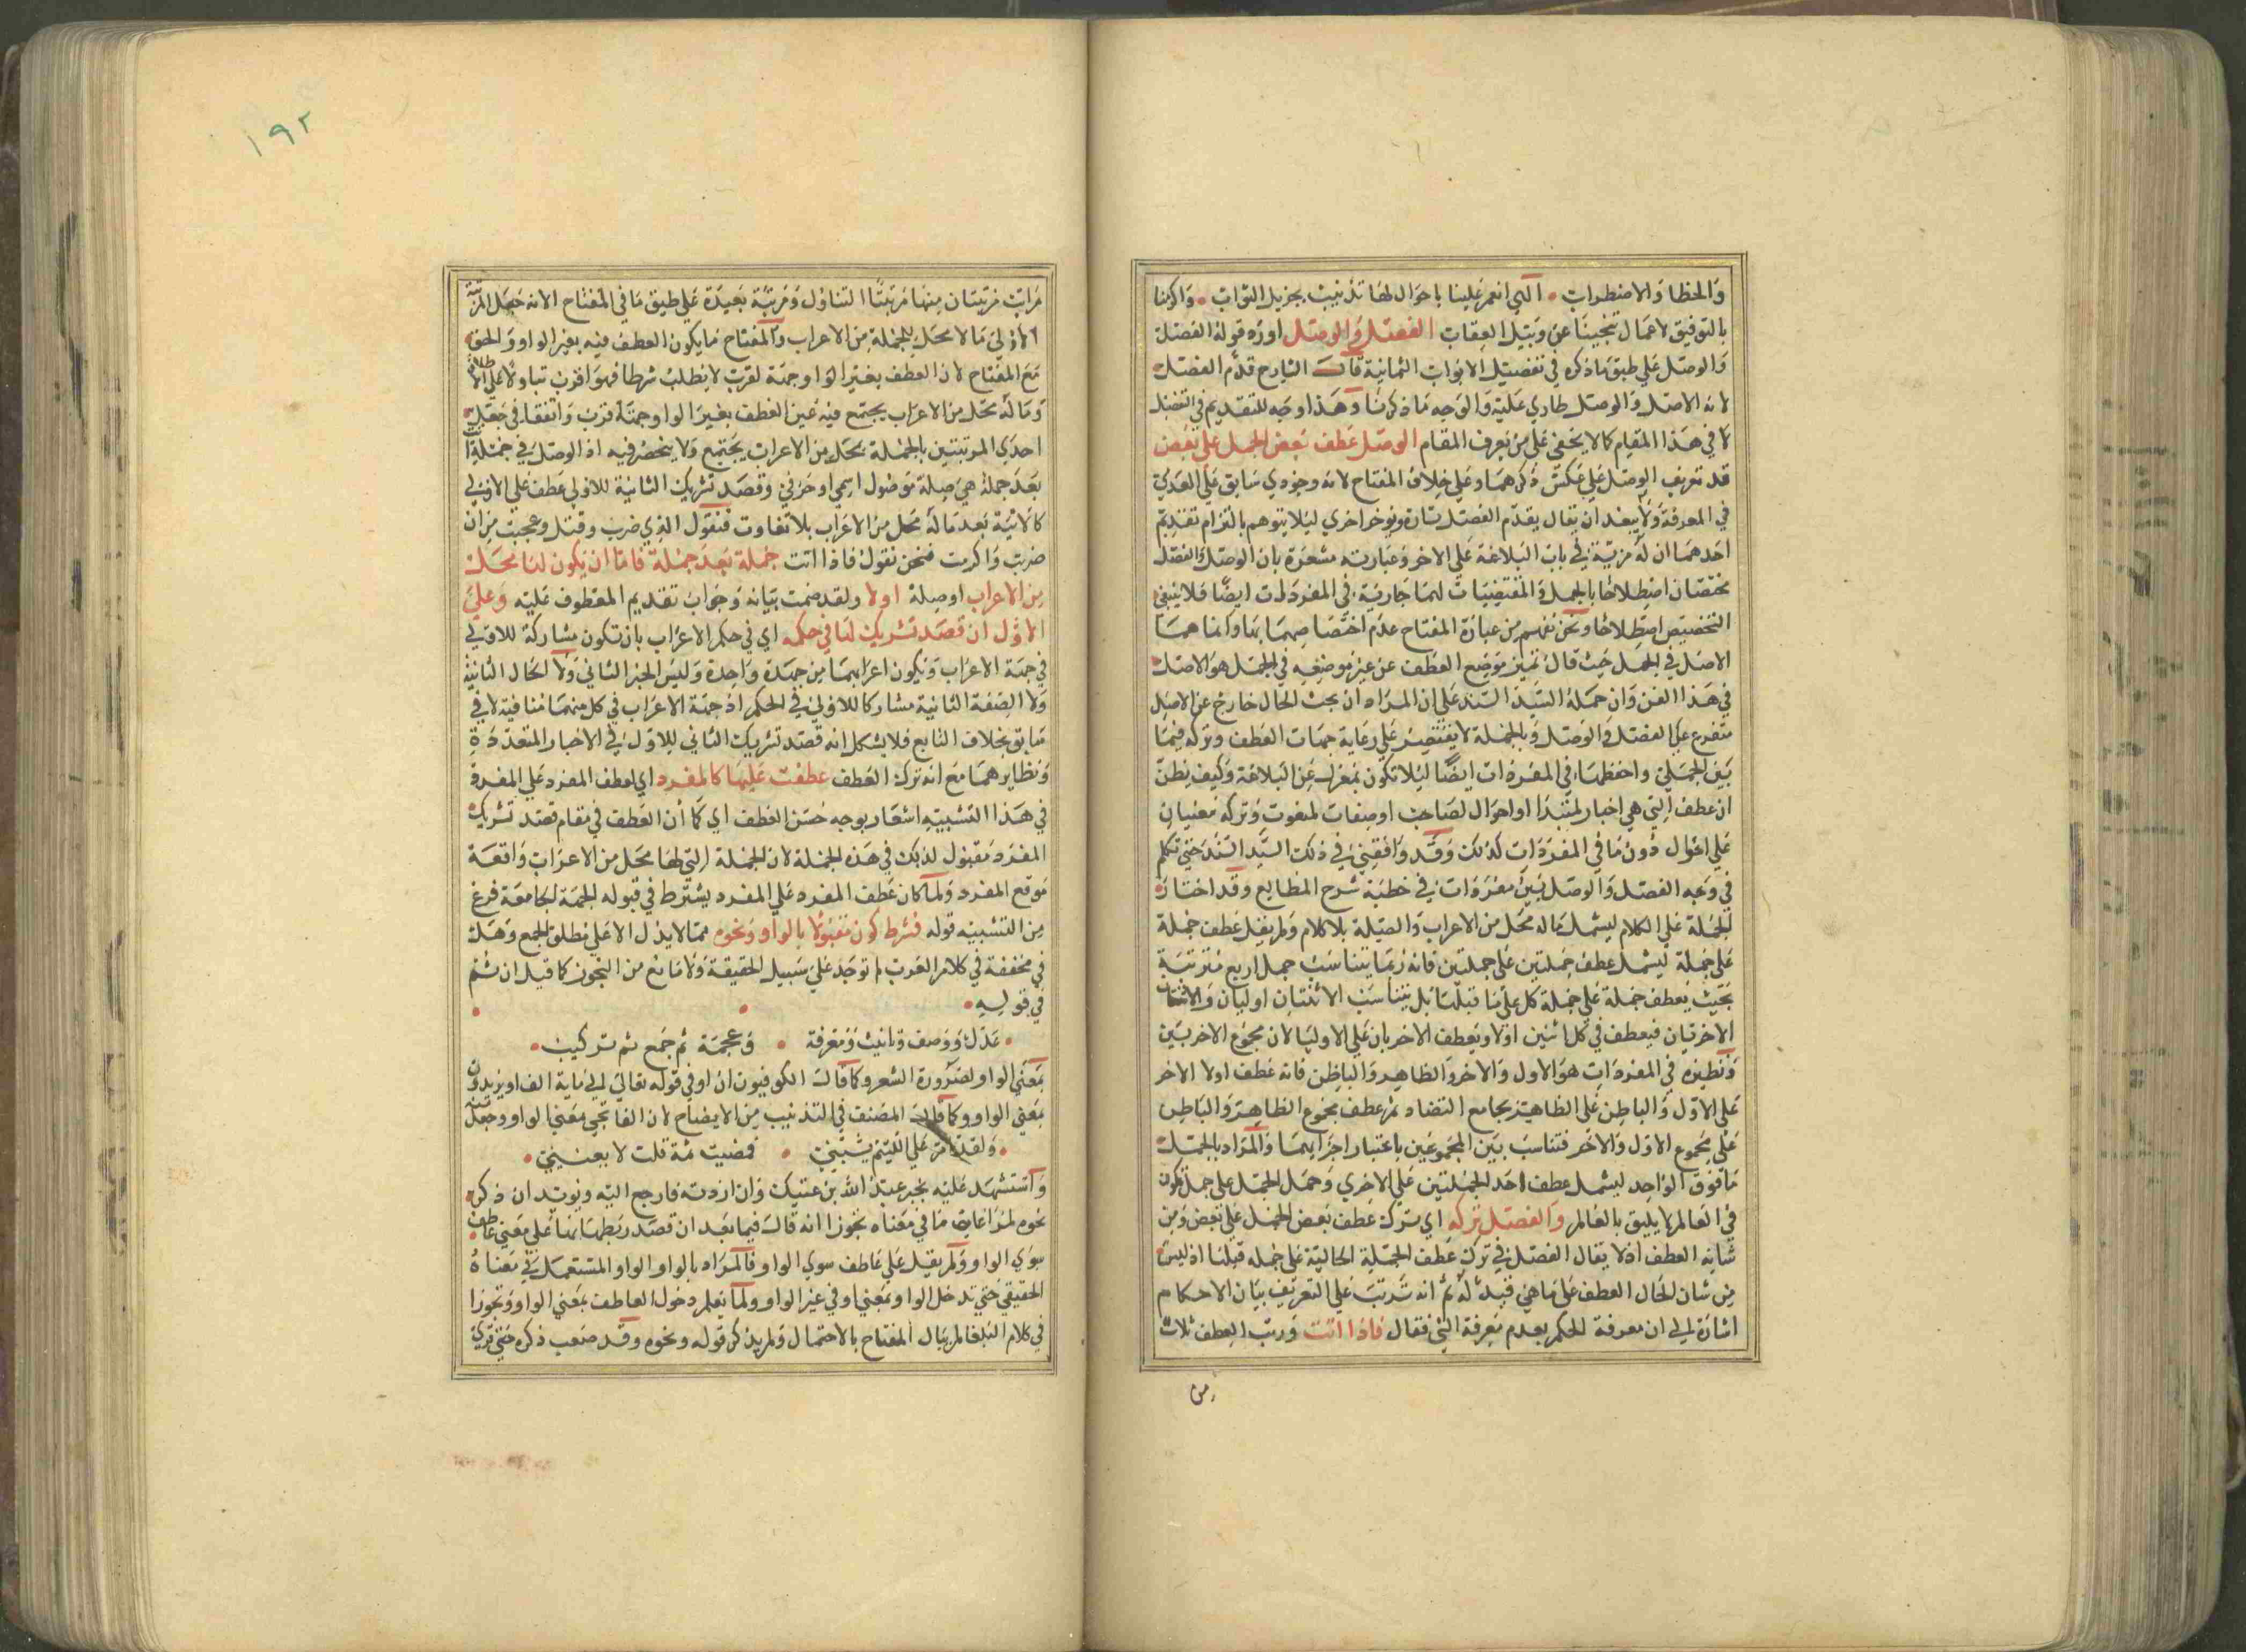 والخطا والاضطراب التي انعم علينا باحوال لها تذنيب بجزيل الثواب واكرمنا
بالتوفيق لاعمال تنجينا عن وبيل العقاب الفصل والوصل اورد قوله الفصل
والوصل علي طبق ما ذكره في تفصيل الابواب الثمانية قال الشارح قدم الفصل
لانه الاصل والوصل طاري عليه والوجه ما ذكرنا وهذا وجه للتقديم في
لا في هذا المقام كما لا يخفي علي من يعرف المقام الوصل عطف بعض الجمل علي بعض
قد تعريف الوصل علي عكس ذكرهما وعلي خلاف المفتاح لانه وجودي سابق علي العدمي
في المعرفة ولا يبعد ان يقال يقدم الفصل تارة ويوخر اخري ليلا يتوهم بالتزام تقديم
احدهما ان له مزية في باب البلاغة علي الاخر وعبارته مشعرة بان الوصل والفصل
مختصان اصطلاحا بالجمل والمقتضيات لهما جارية في المفردات ايضا فلا ينبغي
التخصيص اصطلاحا ونحن نفهم من عبارة المفتاح عدم اختصاصهما بها وانما هما
الاصل في الجمل حيث قال تمييز موضع العطف عن غير موضعه في الجمل هو الاصل
في هذا الفن وان حمله السيد السند علي ان المراد ان بحث الحال خارج عن الاصل
متفرع علي الفصل والوصل وبالجملة لا يقتصر علي رعاية جهات العطف وتركه فيما
بين الجملتين واحفظها في المفردات ايضا ليلا تكون بمعزل عن البلاغة وكيف يظن
ان عطف التي هي اخبار لمبتدا او احوال لصاحب او صفات لمنعوت وتركه مغنيان
علي احوال دون ما في المفردات كذلك وقد وافقني في ذلك السيد السند حتي تكلم
في وجه الفصل والوصل بين مفردات في خطبة شرح المطالع وقد اختار
الجملة علي الكلام ليشمل ما له محل من الاعراب والصلة بلا كلام ولم يقل عطف جملة
علي جملة ليشمل عطف جملتين علي جملتين فانه ربما يتناسب جمل اربع مترتبة
بحيث يعطف جملة علي جملة كل علي ما قبلها بل يتناسب الاثنتان اوليان والاثنتان
الاخريان فيعطف في كل اثنين اولا ويعطف الاخريان علي الاوليا لان مجموع الاخريين
ونظيره في المفردات هو الاول والاخر والظاهر والباطن فانه عطف اولا الاخر
علي الاول والباطن علي الظاهر بجامع التضاد ثم عطف مجموع الظاهر والباطن
علي مجموع الاول والاخر فتناسب بين المجموعين باعتبار اجزايهما والمراد بالجمل
ما فوق الواحد ليشمل عطف احد الجملتين علي الاخري وحمل الجمل علي جمل تكون
في العالم لا يليق بالعالم والفصل تركه اي ترك عطف بعض الجمل علي بعض ومن
شانه العطف اذ لا يقال الفصل في ترك عطف الجملة الحالية علي جمله قبلها اذ ليس
من شان الحال العطف علي ما هي قيد له ثم انه ترتب علي التعريف بيان الاحكام
اشارة الي ان معرفة الحكم بعدم معرفة الشي فقال فاذا اتت ورتب العطف ثلاث
من
١٩٢
مراتب مرتبتان منها مرتبتا التناول ومرتبة بعيدة علي طبق ما في المفتاح الا انه جعل المرتبة
الاولي ما لا محل للجملة من الاعراب والمفتاح ما يكون العطف فيه بغير الواو والحق
مع المفتاح لان العطف بغير الواو جهة لقرب لا يطلب شرطا فهو اقرب تناولا علي الاطلاق
وما له محل من الاعراب يجتمع فيه عين العطف بغير الواو وجهة قرب واتفقا في جعل
احدي المرتبتين بالجملة محل من الاعراب يجتمع ولا ينحصر فيه اذ الوصل في جملة
بعد جملة هي صلة موصول اسمي او حرفي وقصد تشريك الثانية للاولي عطف علي الاولي
كالاتية بعد ما له محل من الاعراب بلا تفاوت فنقول الذي ضرب وقتل وعجبت من ان
ضربت واكرمت فنحن نقول فاذا اتت جملة بعد جملة فاما ان يكون لها محل
من الاعراب او صلة اولا ولقد ضمت بيانه وجواب تقديم المعطوف عليه وعلي
الاول ان قصد تشريك لها في حكمه اي في حكم الاعراب بان تكون مشاركة للاولي
في جهة الاعراب ويكون اعرابهما من جهة واحدة وليس الخبر الثاني ولا الحال الثانية
ولا الصفة الثانية مشاركا للاولي في الحكم اذ جهة الاعراب في كل منهما منافية لا في
سابق بخلاف التابع فلا يشكل انه قصد تشريك الثاني للاول في الاخبار المتعددة
ونظايرهما مع انه ترك العطف عطفت عليها كالمفرد اي لعطف المفرد علي المفرد
في هذا التشبيه اشعار بوجه حسن العطف اي كما ان العطف في مقام قصد تشريك
المفرد مقبول لذلك في هذه الجملة لان الجملة التي لها محل من الاعراب واقعة
موقع المفرد ولما كان عطف المفرد علي المفرد يشترط في قبوله الجهة الجامعة فرع
من التشبيه قوله فشرط كونه مقبولا بالواو ونحوه مما لا يدل الا علي مطلق الجمع وهل
في مخففة في كلام العرب لم توجد علي سبيل الحقيقة ولا مانع من التجوز كما قيل ان ثم
في قوله
عدل ووصف وتانيث ومعرفة وعجمة ثم جمع ثم تركيب
بمعني الواو لضرورة الشعر وكما قال الكوفيون ان او في قوله تعالي الي ماية الف او يزيدون
بمعني الواو وكما قال المصنف في التذنيب من الايضاح لان الفا تجي بمعني الواو وجعل منه
ولقد امر علي اللييم يسبني فمضيت ثمة قلت لا يعنيني
واستشهد عليه بخبر عبد الله بن عتيك وان اردته فارجع اليه ويويد ان ذكر
نحوه لمراعات ما في معناه تجوزا انه قال فيما بعد ان قصد ربطها بها علي معني عاطف
سوي الواو ولم يقل علي عاطف سوي الواو فالمراد بالواو الواو المستعمل في معناه
الحقيقي حتي تدخل الواو بمعني او في غير الواو ولما نعلم دخول العاطف بمعني الواو وتجوزا
في كلام البلغا لم يبال المفتاح بالاحتمال ولم يذكر قوله ونحوه وقد صعب ذكره حتي تري